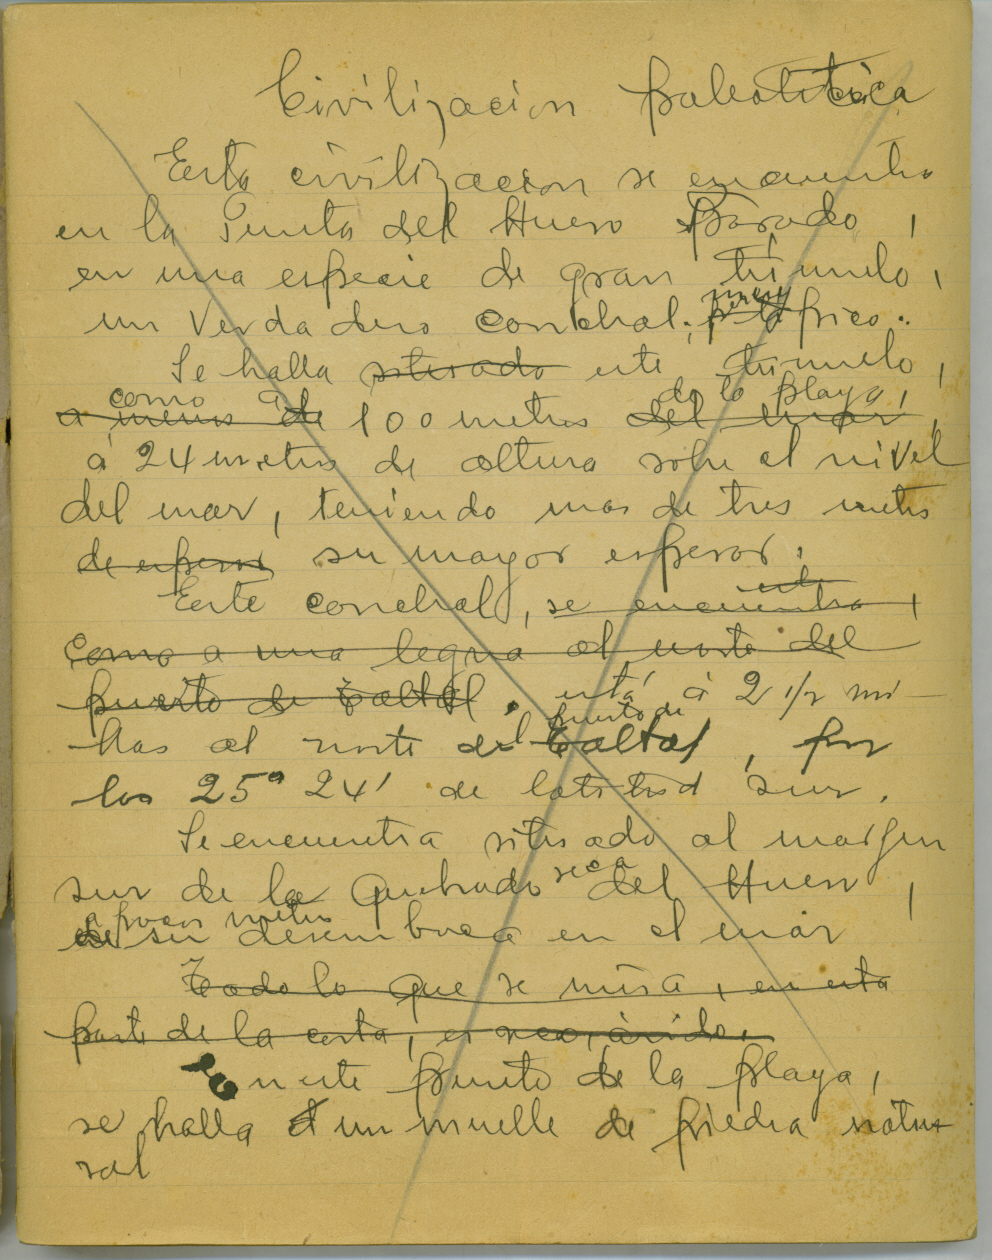 Civilizacion paleolitica
Esta civilizacion se encuentra
en la Punta del Hueso Parado,
en una especie de gran túmulo,
un verdadero conchal.
Se halla situado este túmulo,
como a
de la playa,
a menos de 100 metros del mar,
á 24 metros de altura sobre el nivel
del mar, teniendo mas de tres metros
de espesor su mayor espesor.
Este conchal, se encuentra,
como a una legua al norte del
puerto de Taltal. está á 2 1/2 mi-
puerto de
llas al norte del Taltal, por
los 25° 24' de latitud Sur.
Se encuentra situado al margen
seca
sur de la Quebrada del Hueso,
a pocos metros
de su desemboca en el mar
Todo lo que se mira, en esta
parte de la costa, es seco, árido.
En este punto de la playa,
se halla un muelle de piedra natu-
ral